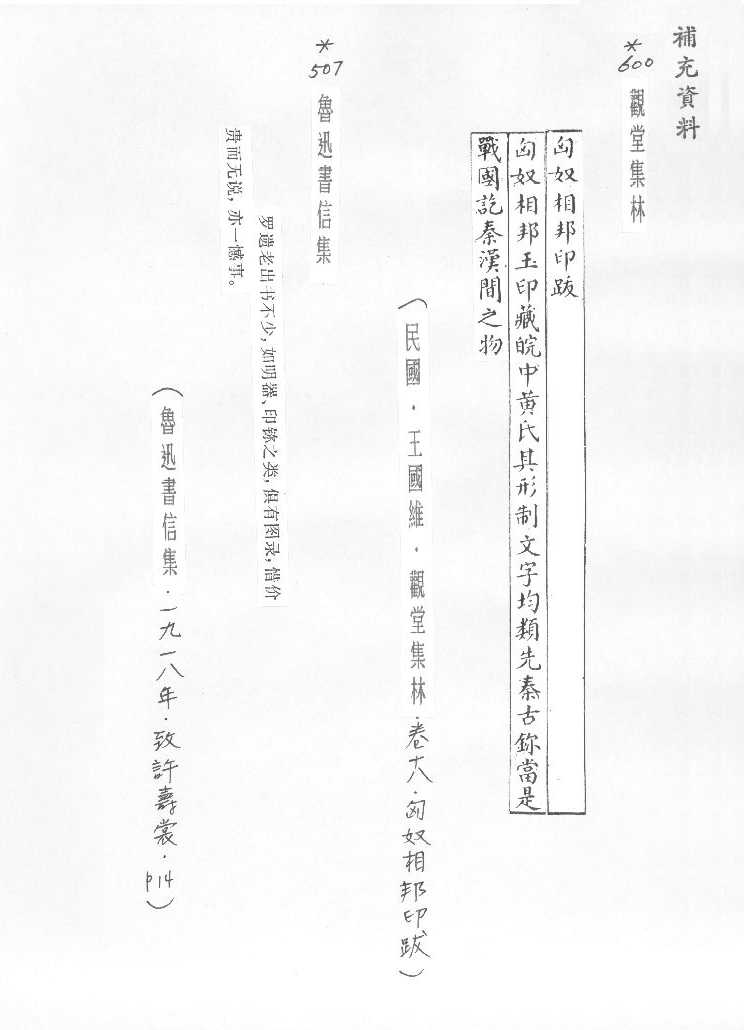 補充資料
*600
觀堂集林
匈奴相邦印跋
匈奴相邦玉印藏皖中黄氏其形制文字均類先秦古鉨當是
戰國訖秦漢間之物
（民國．王國維．觀堂集林．卷十八．匈奴相邦印跋）
*507
魯迅書信集
罗遗老出书不少，如明器、印鉨之类，俱有图录，惜价
贵而无说，亦一憾事。
（魯迅書信集．一九一八年．致許壽裳．p14）